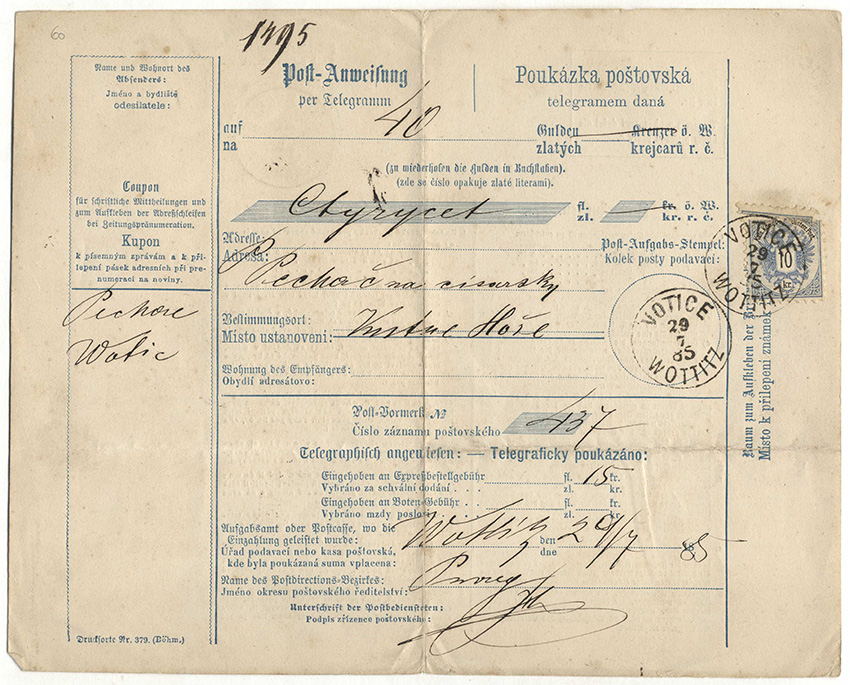 60
1495
Name und Wohnort des
Absenders:
Jméno a bydliště
odesilatele:
Coupon
für schriftliche Mittheilungen und
zum Aufkleben der Adreßschleifen
bei Zeitungspränumeration.
Kupon
k písemným zprávám a k při-
lepení pásek adresních při pre-
numeraci na noviny.
Pechoče
Wotic
Drucksorte Nr. 379. (Böhm.)
Post-Anweisung
per Telegramm
Poukázka poštovská
telegramem daná
auf 40 Gulden Kreuzer ö. W.
na zlatých krejcarů r. č.
(zu wiederholen die Gulden in Buchstaben).
(zde se číslo opakuje zlaté literami).
Ctyrycet fl. kr. ö. W.
zl. kr. r. č.
Adresse:
Adresa:
Pechoč na cisarsky
Post-Aufgabs-Stempel:
Kolek posty podavací:
Bestimmungsort:
Místo ustanovení: Hoře
Wohnung des Empfängers:
Obydlí adresátovo:
VOTICE
29
7
85
WOTTITZ
Post-Vormerk No
Číslo záznamu poštovského 437
Telegraphisch angewiesen: — Telegraficky poukázáno:
Eingehoben an Expreßbestellgebühr fl. 15 kr.
Vybráno za schvální dodání . . . zl. kr.
Eingehoben an Boten-Gebühr . . . fl. kr.
Vybráno mzdy poslovi zl. kr.
Aufgabsamt oder Postcasse, wo die
Einzahlung geleistet wurde: Wottitz den 29/7 1885
Úřad podavací nebo kasa poštovská, dne
kde byla poukázaná suma vplacena:
Name des Postdirections-Bezirkes: Prag
Jméno okresu poštovského ředitelství:
Unterschrift der Postbediensteten:
Podpis zřízence poštovského:
VOTICE
29
7
85
WOTTITZ
10
kr.
Raum zum Aufkleben der
Místo k přilepení známek